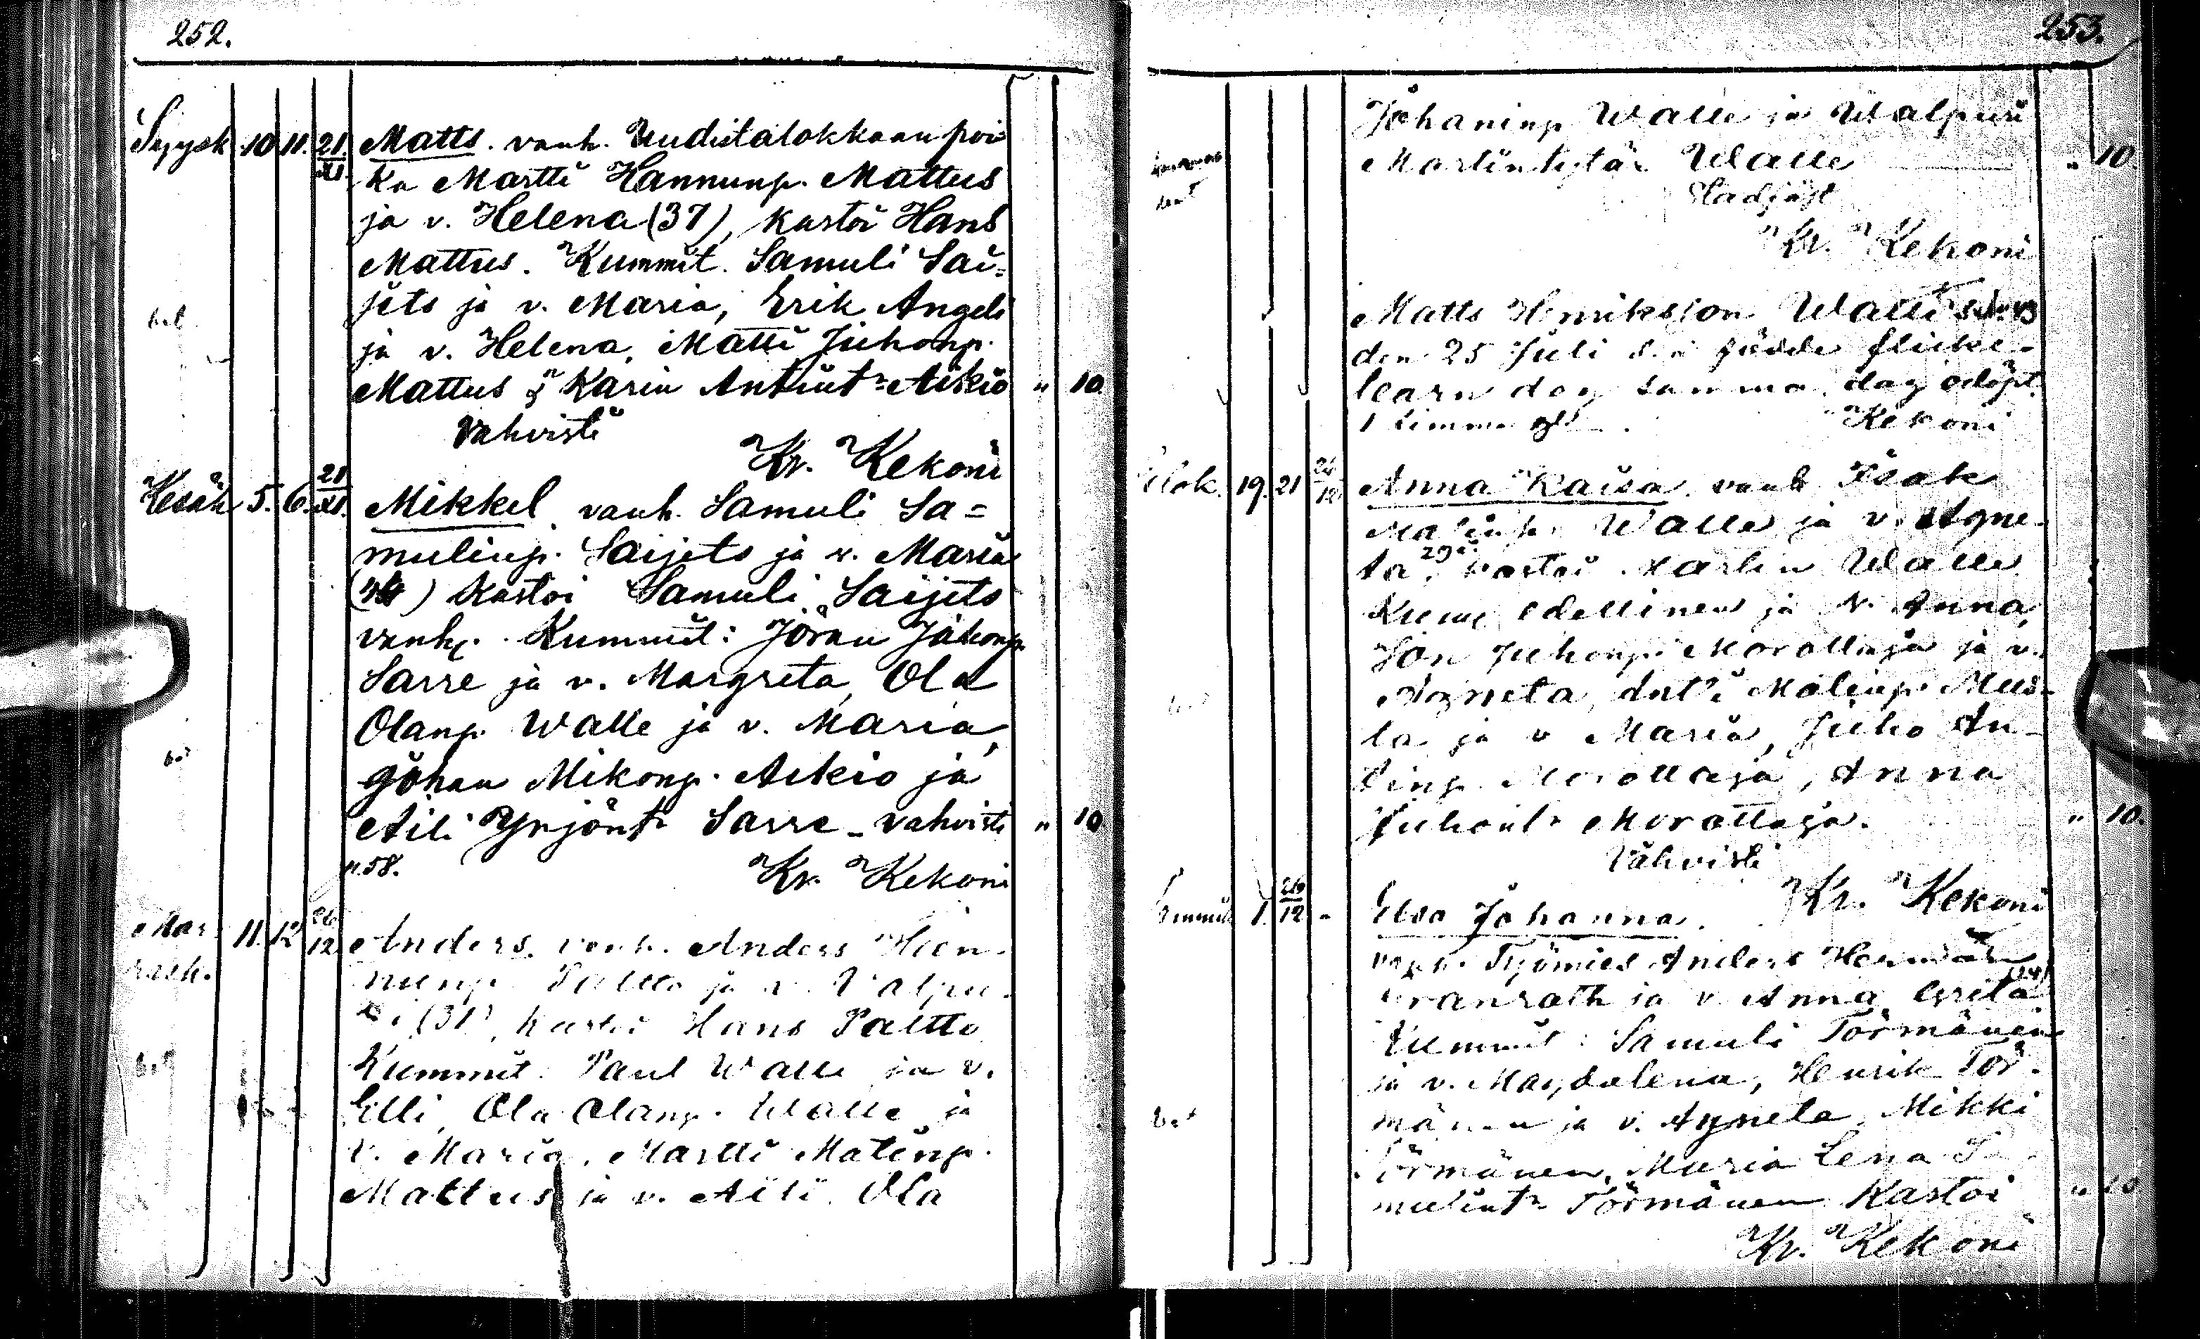 252.
Syysk. 10. 11. 21./XI. Matts. vanh. Uudistalokkaan poi
ka Martti Hannunp. Mattus
ja v. Helena (37), kastoi Hans
Mattus. Kummit. Samuli Sai=
jets ja v. Maria, Erik Angeli
bet
ja v. Helena, Matti Juhonp.
Mattus & Karin Antint:r Aikio " 10.
Vahvisti
Kr. Kekoni
Kesäk 5. 6. 21/XI. Mikkel. vanh. Samuli Sa=
mulinp. Saijets ja v. Maria
kastoi Samuli Saijets
vanh. Kummit: Jöran Johonp
Sarre ja v. Margreta, Ola
Olanp. Walle ja v. Maria,
Johan Mikonp. Aikio ja
Aili Yrjönt:r Sarre - vahvisti " 10
n. 58.
Kr. Kekoni
Mar- 11. 12 26/12. Anders. vanh. Anders
rask. nunp. Paltto ja v. Valpu-
ri (31), kastoi Hans Paltto
Kummit. Paul Walle ja v.
bet
Elli, Ola Olanp. Walle ja
v. Maria, Martti Matinp.
Mattus ja v. Aili. Ola
253.
Johaninp Walle ja Walpuri
Martintytär Walle " 10.
Stadfäst
Kr. Kekoni
Matts Henriksson Walles
den 25 Juli födde flicke-
barn dog samma dag odöpt.
1 timme
Kekoni
Elok. 19. 21 26/12 Anna Kaisa. vanh Isak
Walle ja v. Agne-
ta, 29 kastoi Martin Walle
Kumm edellinen ja v. Anna,
Jon Juhonp. Morottaja ja v.
Agneta, Antti Matinp. Mus-
ta ja v Maria, Juho An-
tinp. Morottaja, Anna
Juhont:r Morottaja. " 10.
Vahvisti
Kr. Kekoni
1. 26/12 - Elsa Johanna.
vanh. Työmies Anders Herman
ja v. Anna Grita
Kummit: Samuli Törmänen
ja v. Magdalena, Henrik Tör-
mänen ja v. Agneta, Mikki
bet
Törmänen, Maria Lena Sa
mulint:r Törmänen Kastoi " 10
Kr. Kekoni